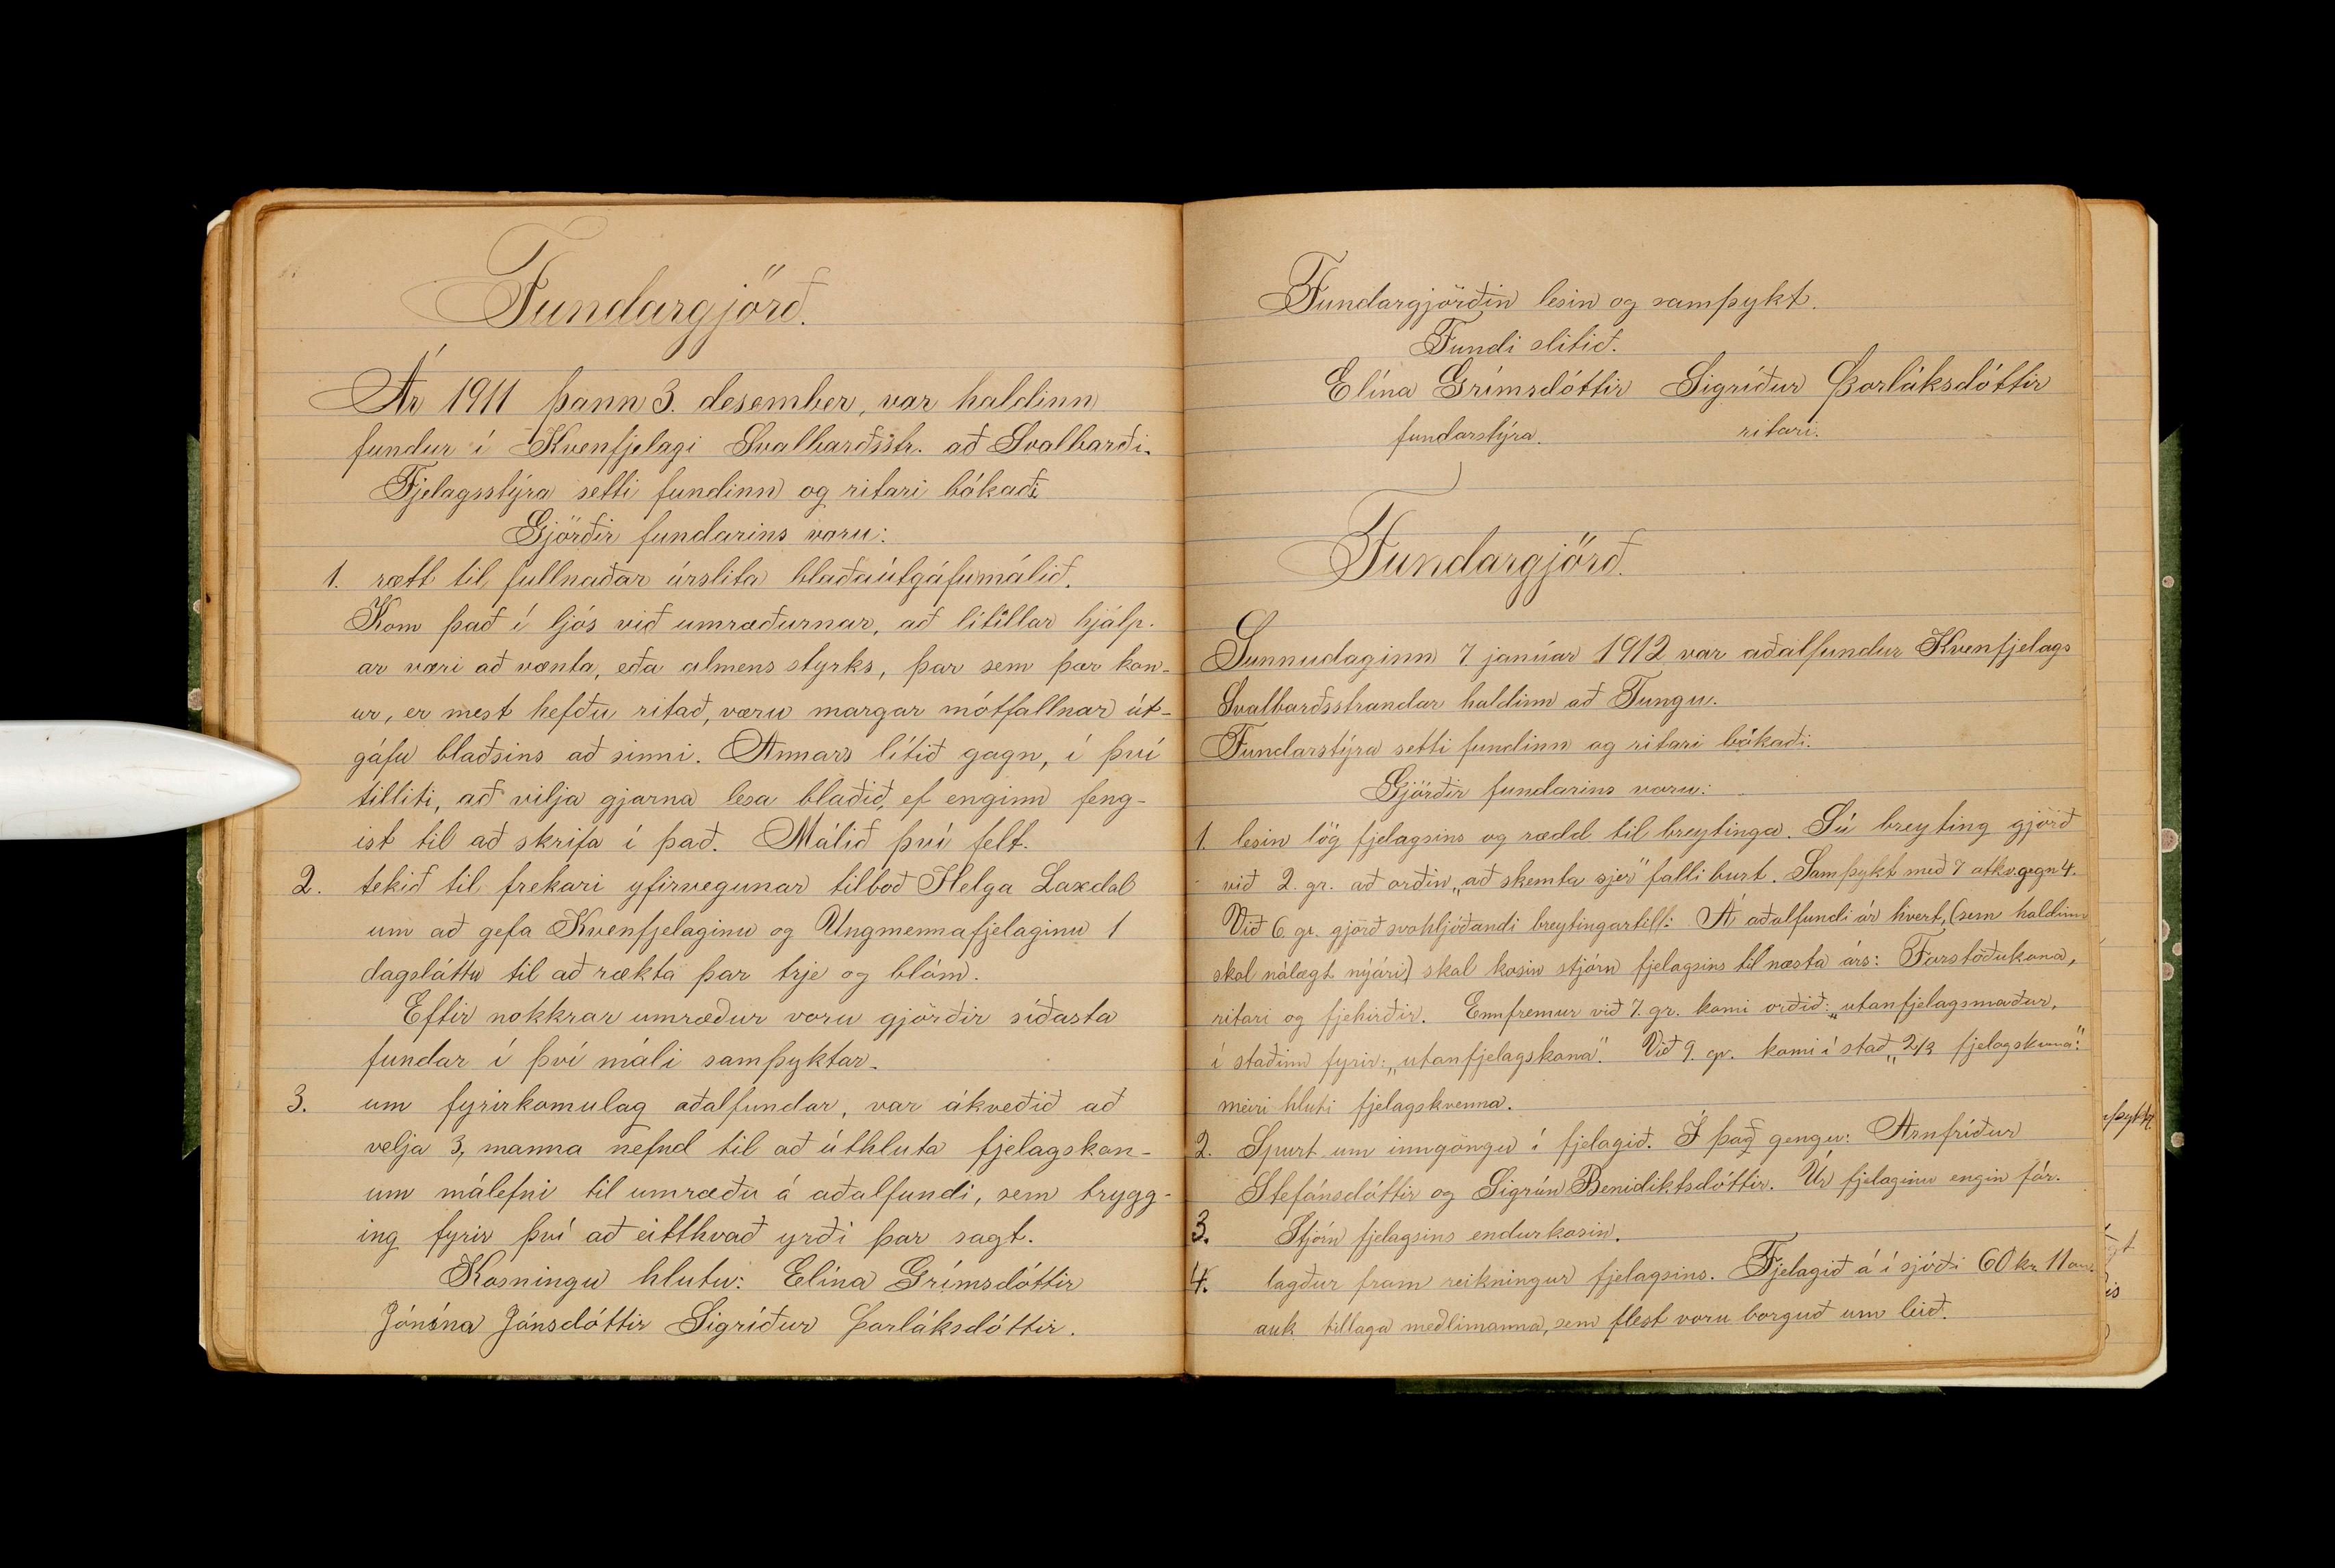 Fundargjörð.
Ár 1911 þann 3. desember, var haldinn
fundur í Kvenfjelagi Svalbarðsstr. að Svalbarði.
Fjelagsstýra setti fundinn og ritari bókaði
Gjörðir fundarins voru:
1. rætt til fullnaðar úrslita blaðaútgáfumálið.
Kom það í ljós við umræðurnar, að lítillar hjálp-
ar væri að vænta, eða almens styrks, þar sem þær kon-
ur, er mest hefðu ritað, væru margar mótfallnar út-
gáfu blaðsins að sinni. Annars lítið gagn, í því
tilliti, að vilja gjarna lesa blaðið, ef enginn feng-
ist til að skrifa í það. Málið því felt.
2. tekið til frekari yfirvegunar tilboð Helga Laxdal
um að gefa Kvenfjelaginu og Ungmennafjelaginu 1
dagsláttu til að rækta þar trje og blóm.
Eftir nokkrar umræður voru gjörðir síðasta
fundar í því máli samþyktar.
3. um fyrirkomulag aðalfundar, var ákveðið að
velja 3, manna nefnd til að úthluta fjelagskon-
um málefni til umræðu á aðalfundi, sem trygg-
ing fyrir því að eitthvað yrði þar sagt.
Kosningu hlutu: Elína Grímsdóttir
Jónína Jónsdóttir Sigríður Þorláksdóttir.
Fundargjörðin lesin og samþykt.
Fundi slitið.
Elína Grímsdóttir Sigríður Þorláksdóttir
fundarstýra. ritari.
Fundargjörð.
Sunnudaginn 7 janúar 1912 var aðalfundur Kvenfjelags
Svalbarðsstrandar haldinn að Tungu.
Fundarstýra setti fundinn og ritari bókaði.
Gjörðir fundarins voru:
1. lesin lög fjelagsins og rædd til breytinga. Sú breyting gjörð
við 2. gr. að orðin „að skemta sjer" falli burt. Samþykt með 7 atkv. gegn 4.
Við 6. gr. gjörð svohljóðandi breytingartill: Á aðalfundi ár hvert, (sem haldinn
skal nálægt nýári) skal kosin stjórn fjelagsins til næsta árs: Forstöðukona,
ritari og fjehirðir. Ennfremur við 7. gr. komi orðið: „utanfjelagsmaður,
í staðinn fyrir: „utanfjelagskona". Við 9. gr. komi í stað „2/3 fjelagskvenna":
meiri hluti fjelagskvenna.
2. Spurt um inngöngu í fjelagið. Í það gengu: Arnfríður
Stefánsdóttir og Sigrún Benidiktsdóttir. Úr fjelaginu engin fór.
3. Stjórn fjelagsins endurkosin.
4. lagður fram reikningur fjelagsins. Fjelagið á í sjóði 60 kr. 11 au.
auk tillaga meðlimanna, sem flest voru borguð um leið.